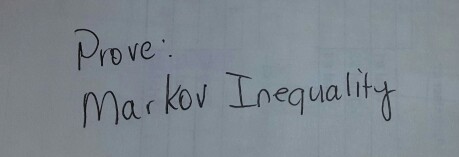 Prove:
Markov Inequality